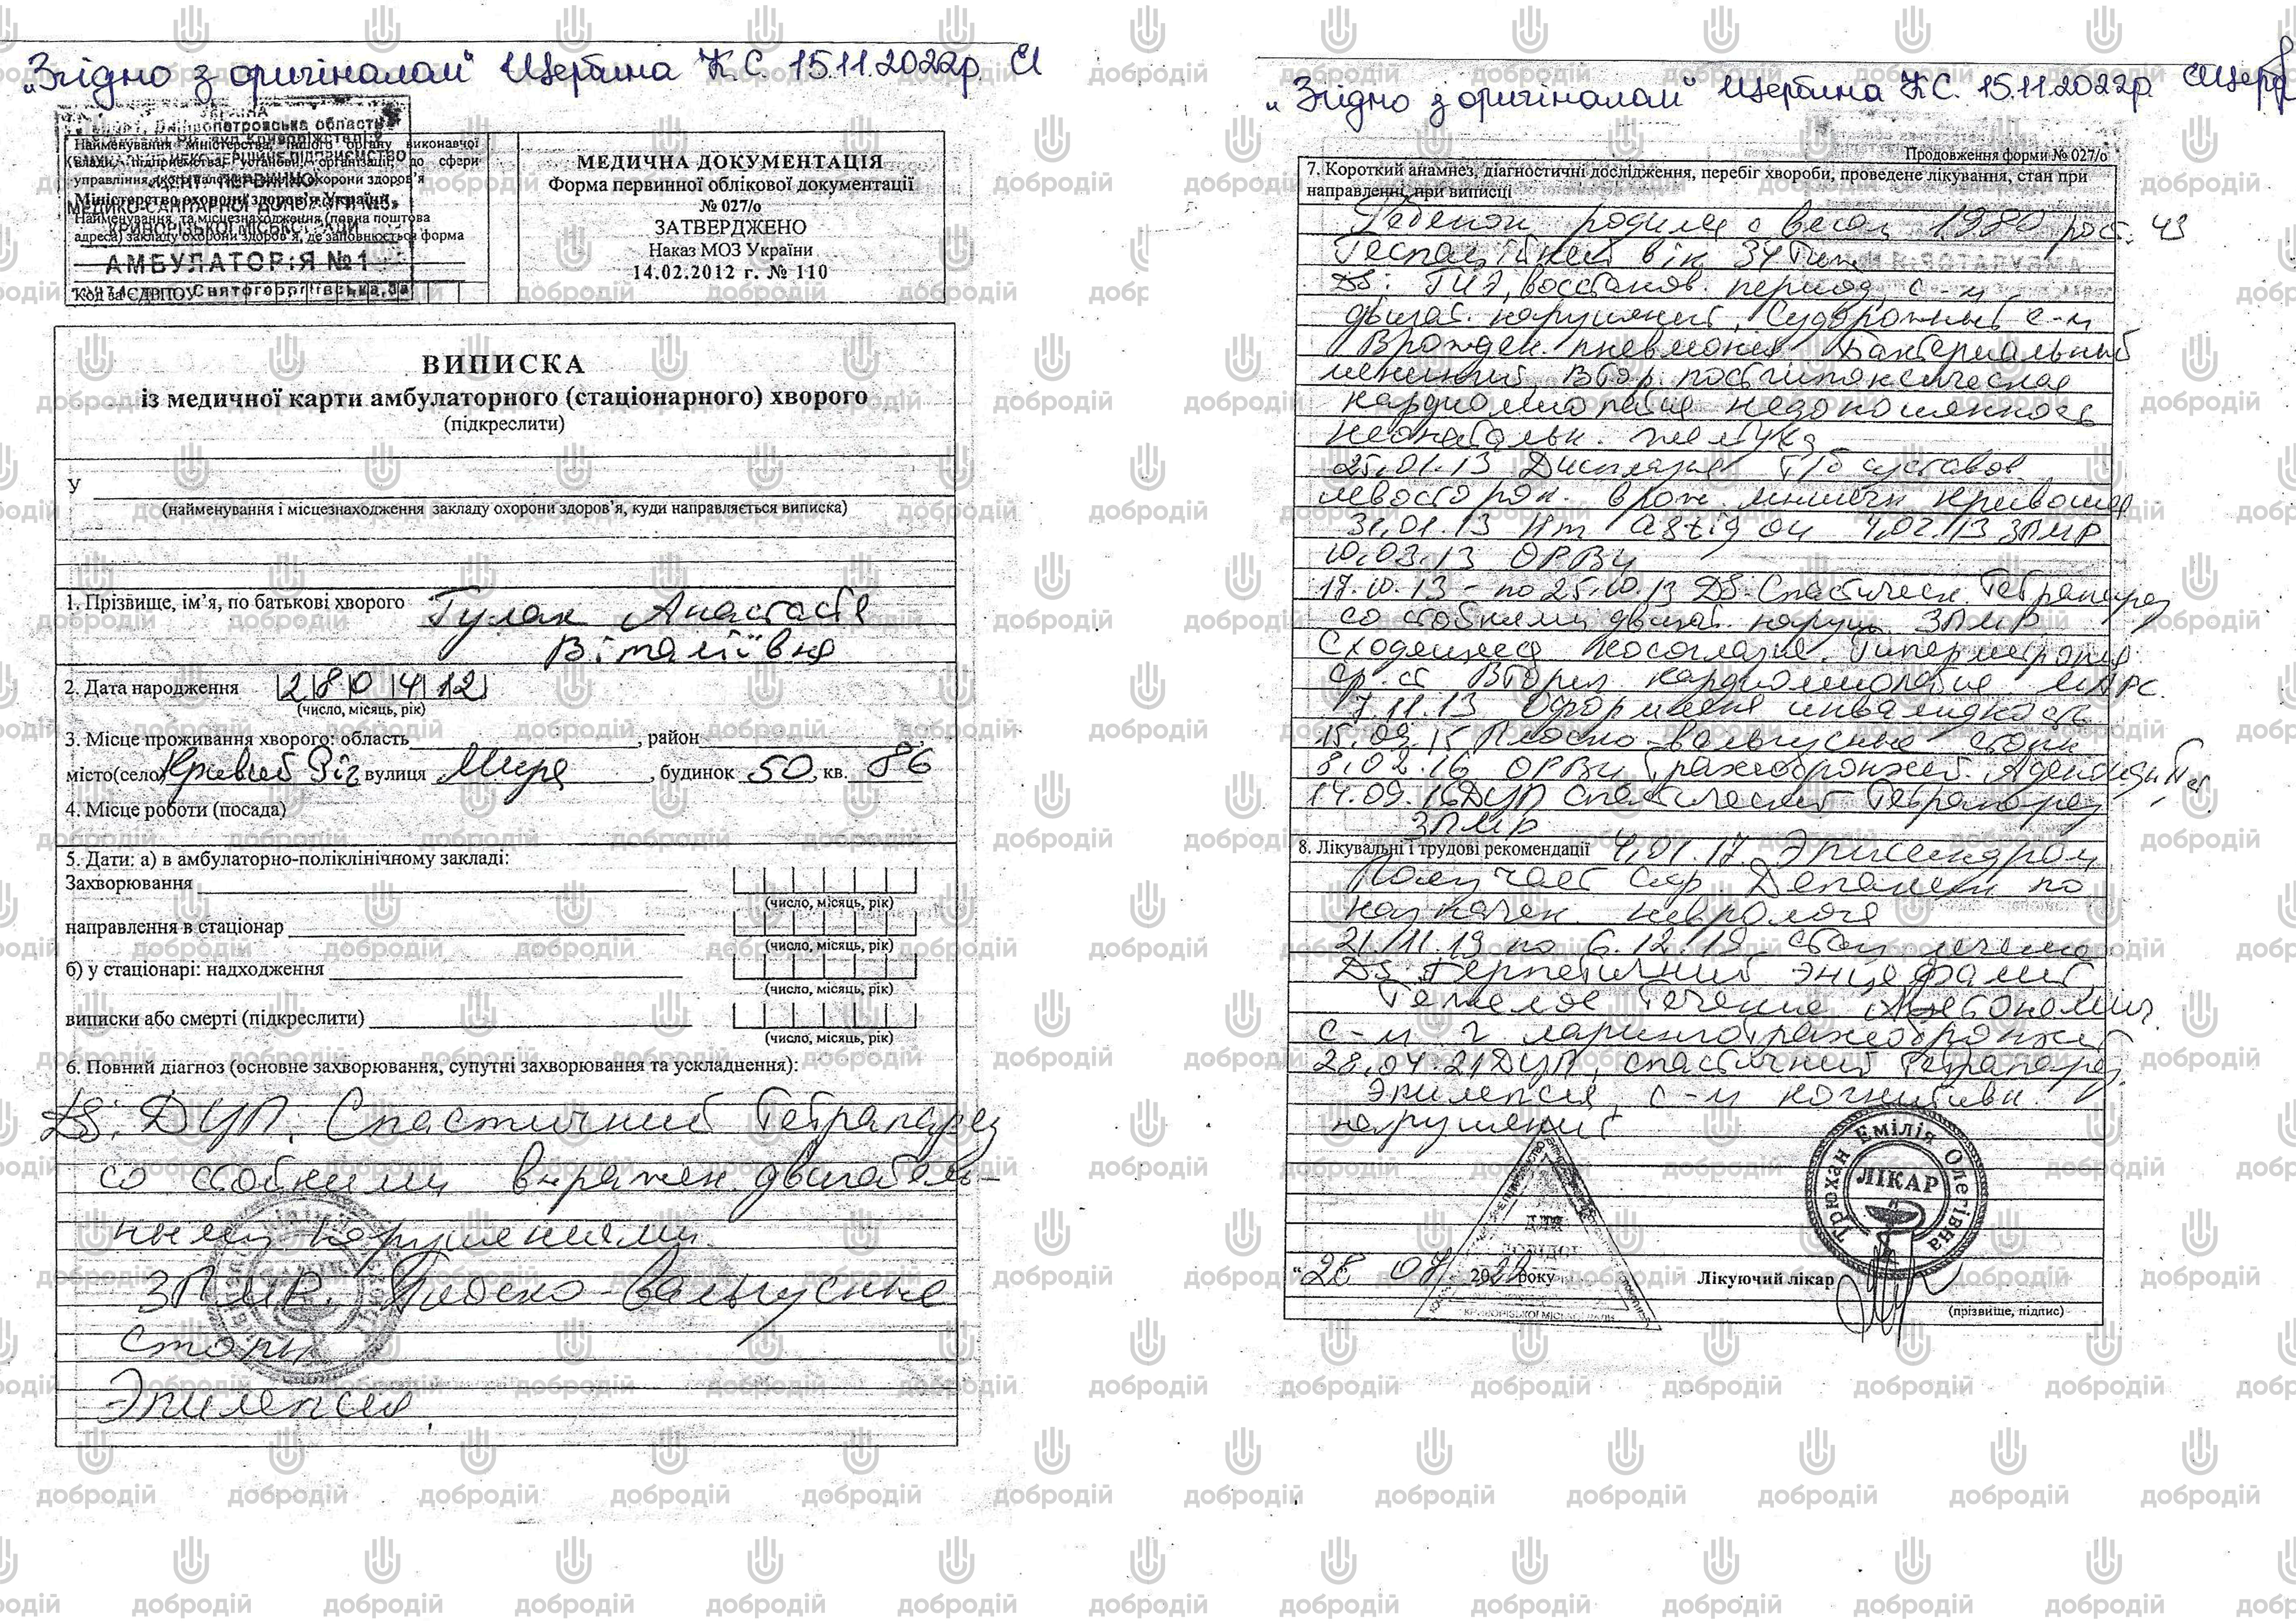 „Згідно з оригіналом" Щербина К.С. 15.11.2022р.
УКРАЇНА
Дніпропетровська область
Найменування Міністерства, іншого органу виконавчої
влади, підприємства, установи, організації, до сфери
управління якого належить заклад охорони здоров'я
Міністерство охорони здоров'я України
Найменування та місцезнаходження (повна поштова
адреса) закладу охорони здоров'я, де заповнюється форма
АМБУЛАТОРІЯ №1
Код за ЄДРПОУ
МЕДИЧНА ДОКУМЕНТАЦІЯ
Форма первинної облікової документації
№ 027/о
ЗАТВЕРДЖЕНО
Наказ МОЗ України
14.02.2012 г. № 110
ВИПИСКА
із медичної карти амбулаторного (стаціонарного) хворого
(підкреслити)
У
(найменування і місцезнаходження закладу охорони здоров'я, куди направляється виписка)
1. Прізвище, ім'я, по батькові хворого Гулак Анастасія
Віталіївна
2. Дата народження 280412
(число, місяць, рік)
3. Місце проживання хворого: область, район
місто(село) Кривий Ріг вулиця Мира, будинок 50, кв. 86
4. Місце роботи (посада)
5. Дати: а) в амбулаторно-поліклінічному закладі:
Захворювання
(число, місяць, рік)
направлення в стаціонар
(число, місяць, рік)
б) у стаціонарі: надходження
(число, місяць, рік)
виписки або смерті (підкреслити)
(число, місяць, рік)
6. Повний діагноз (основне захворювання, супутні захворювання та ускладнення):
DS: ДЦП. Спастичний тетрапарез
со стойкими выражен. двигатель-
ными нарушениями.
ЗПМР. Плоско-вальгусные
стопы
Эпилепсия.
„Згідно з оригіналом" Щербина К.С. 15.11.2022р.
Продовження форми № 027/о
7. Короткий анамнез, діагностичні дослідження, перебіг хвороби, проведене лікування, стан при
направленні, при виписці
Ребенок родился с весом 1980 рост. 43
Гестаційний вік 34 тиж
DS: восстанов. период, с-м
двигат. нарушений, Судорожный с-м
Врожден. пневмония Бактериальный
менингит, Втор. постгипоксическая
кардиомиопатия недоношенность
неонатальн. желтуха
25.01.13 Дисплазия т/б суставов
левосторон. врож. мышечн кривошея
31.01.13 Hm astig ou 4.02.13 ЗПМР
10.03.13 ОРВИ
17.10.13 - по 25.10.13 DS: Спастическ. тетрапарез
со стойкими двигат. наруш. ЗПМР
Сходящееся косоглазие. Гиперметропия
ср. ст Вторич. кардиомиопатия МАРС.
7.11.13 Оформлена инвалидность
15.09.15 Плоско-вальгусные стопы
8.02.16 ОРВИ трахеобронхит. Аденоидит
14.09.16 ДЦП спастический тетрапарез
ЗПМР
8. Лікувальні і трудові рекомендації 4.01.17. Эписиндром
Получает сир. Депакин по
назначен. невролога
21.11.19 по 6.12.19 стац лечение
DS: Герпетичний энцефалит,
Тяжелое течение
с-м ларинготрахеобронхит
28.04.21 ДЦП, спастичний тетрапарез.
Эпилепсия, с-м когнитивн.
нарушений
Трюхан Емілія Олегівна
ЛІКАР
ДЛЯ
„28 07 2022 року
Лікуючий лікар
(прізвище, підпис)
добродій